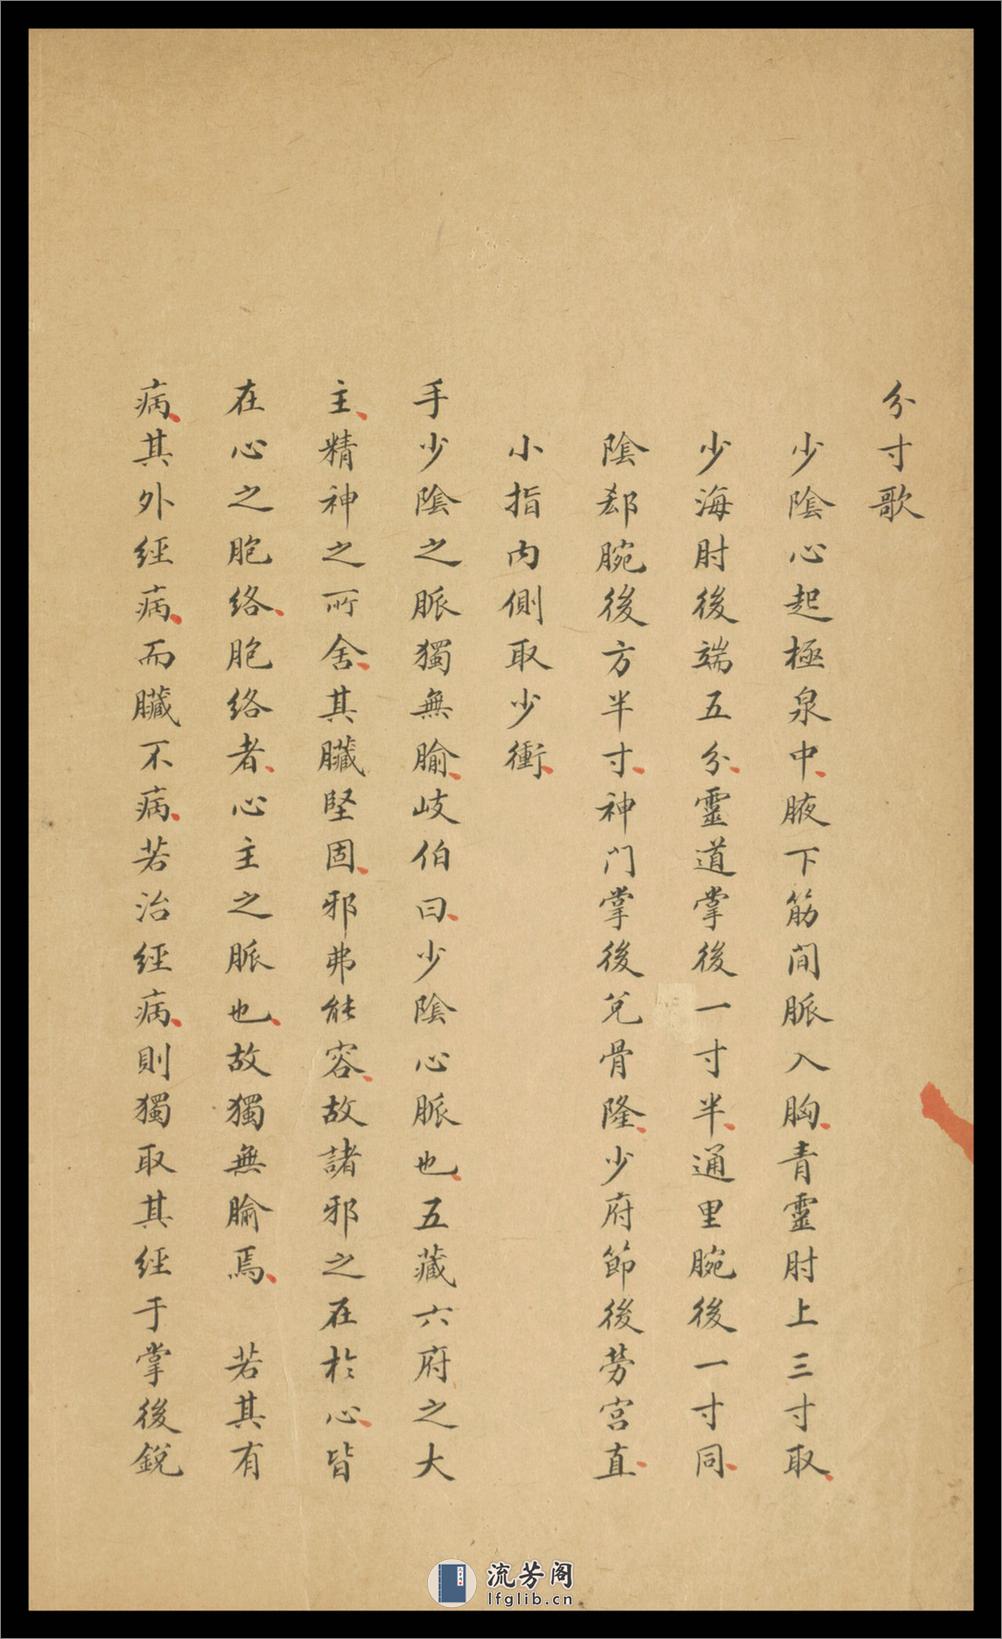 分寸歌
少陰心起極泉中腋下筋間脈入胸青靈肘上三寸取
少海肘後端五分靈道掌後一寸半通里腕後一寸同
陰郄腕後方半寸神門掌後兌骨隆少府節後勞宮直
小指內側取少衝
手少陰之脈獨無腧岐伯曰少陰心脈也五藏六府之大
主精神之所舍其臟堅固邪弗能容故諸邪之在於心皆
在心之胞絡胞絡者心主之脈也故獨無腧焉 若其有
病其外經病而臟不病若治經病則獨取其經于掌後銳
流芳阁
lfglib.cn